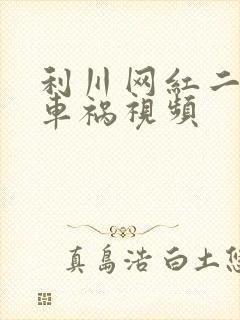 利川网红二
车祸視频
真島浩 白土悠